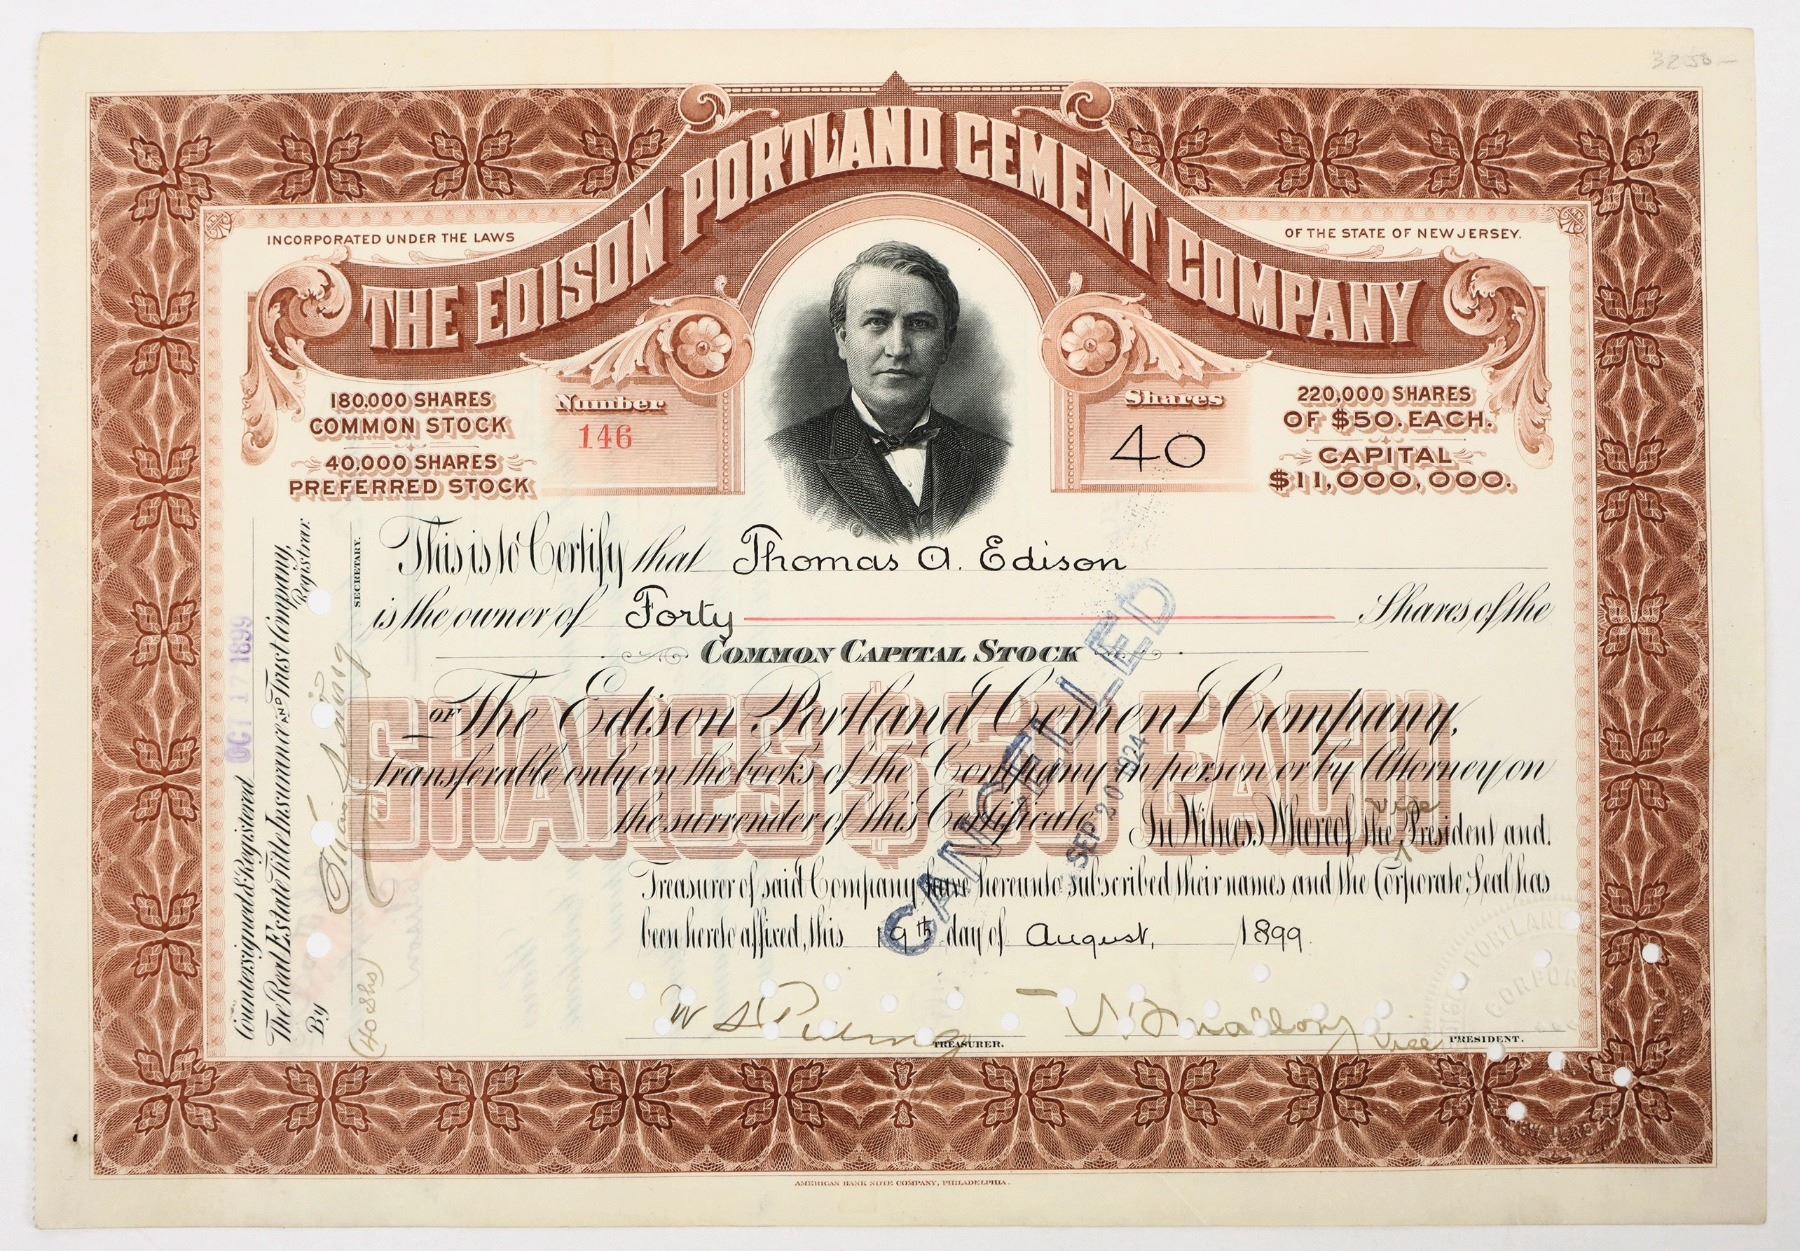 3250-
THE EDISON PORTLAND CEMENT COMPANY
INCORPORATED UNDER THE LAWS
OF THE STATE OF NEW JERSEY.
180,000 SHARES
COMMON STOCK
40,000 SHARES
PREFERRED STOCK
Number
146
Shares
40
220,000 SHARES
OF $50. EACH.
CAPITAL
$11,000,000.
This is to Certify that Thomas A. Edison
is the owner of Forty Shares of the
COMMON CAPITAL STOCK
OF The Edison Portland Cement Company,
transferable only on the books of the Company in person or by Attorney on
the surrender of this Certificate. In Witness Whereof the Vice President and
Treasurer of said Company have hereunto subscribed their names and the Corporate Seal has
been hereto affixed, this 19th day of August, 1899.
SHARES $50 EACH
CANCELLED
SEP 20 1924
TREASURER.
Vice PRESIDENT.
Countersigned & Registered OCT 17 1899
The Real Estate Title Insurance AND Trust Company,
Registrar.
By
SECRETARY.
(40 Shs)
PORTLAND
CORPOR
AMERICAN BANK NOTE COMPANY, PHILADELPHIA.